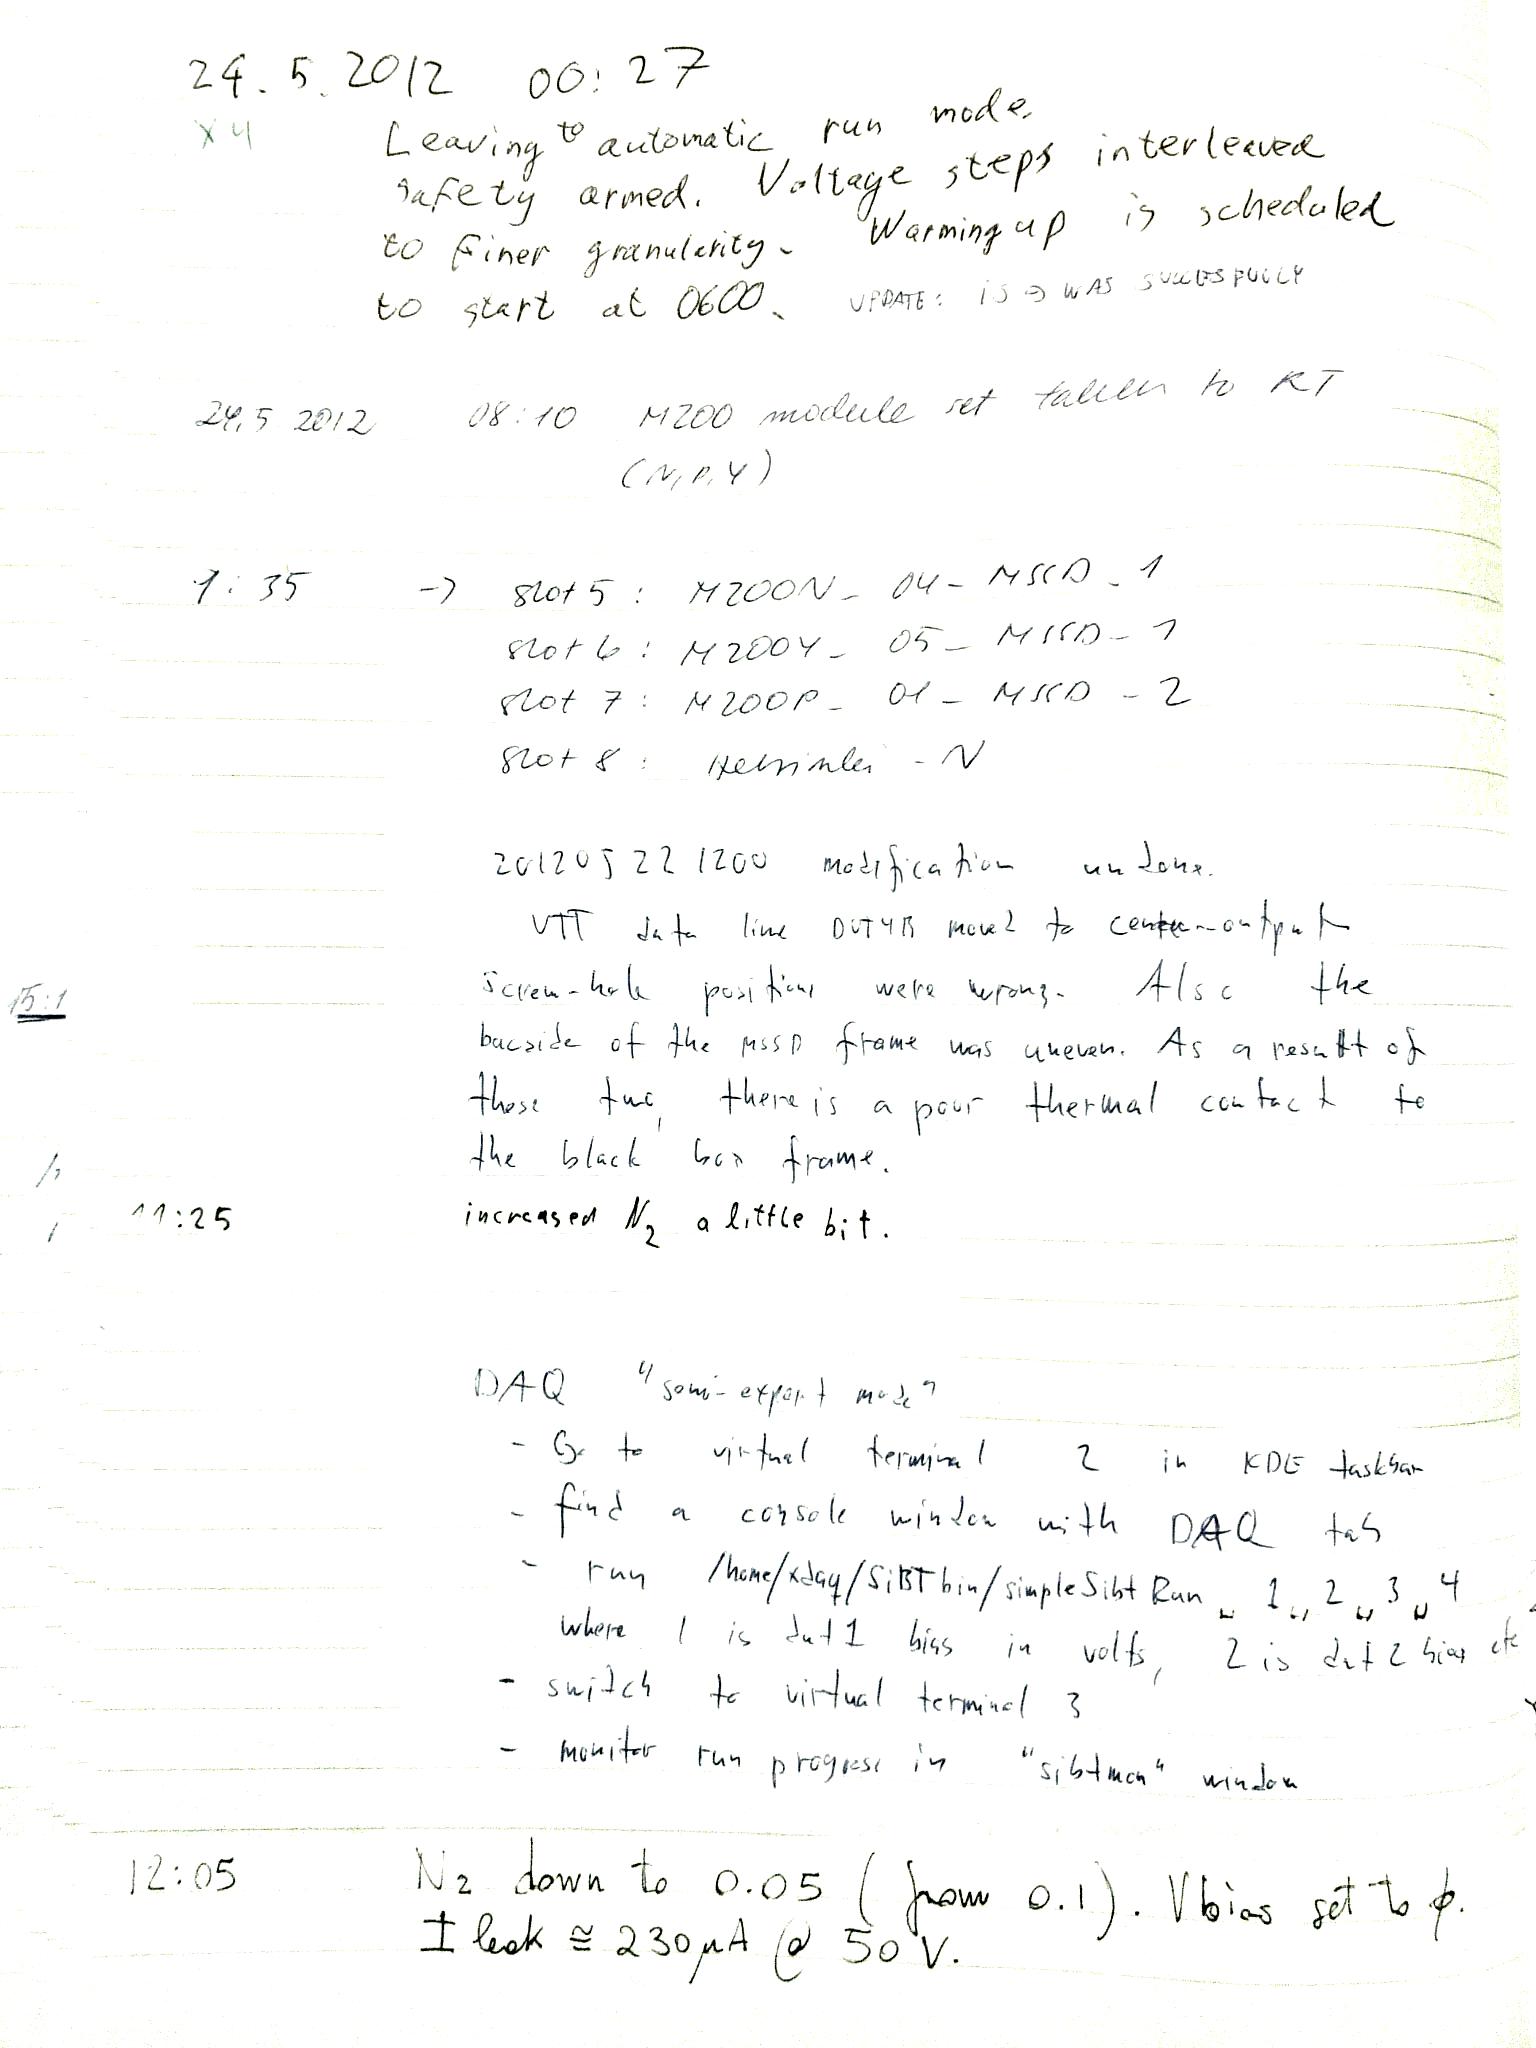 24.5.2012 00:27
x4 Leaving to automatic run mode.
safety armed. Voltage steps interleaved
to finer granularity. Warming up is scheduled
to start at 0600. UPDATE: is → WAS SUCCESFULLY
24.5 2012 08:10 M200 module set taken to RT
(N,P,Y)
9:35 → slot 5: M200N_04_MSSD_1
slot 6: M200Y_05_MSSD_1
slot 7: M200P_01_MSSD_2
slot 8: Helsinki-N
201205221200 modification undone.
VTT data line DUT4B moved to output
Screw-hole positions were wrong. Also the
15:1
bacside of the MSSD frame was uneven. As a result of
these two, there is a poor thermal contact to
the black box frame.
11:25 increased N2 a little bit.
DAQ "semi-expert mode"
- Go to virtual terminal 2 in KDE taskbar
- find a console window with DAQ tab
- run /home/xdaq/SiBTbin/simpleSibtRun␣1␣2␣3␣4
where 1 is dut1 bias in volts, 2 is dut2 bias etc
- switch to virtual terminal 3
- monitor run progress in "sibtmon" window
12:05 N2 down to 0.05 (from 0.1). Vbias set to ϕ.
I leak ≅ 230μA @ 50 V.